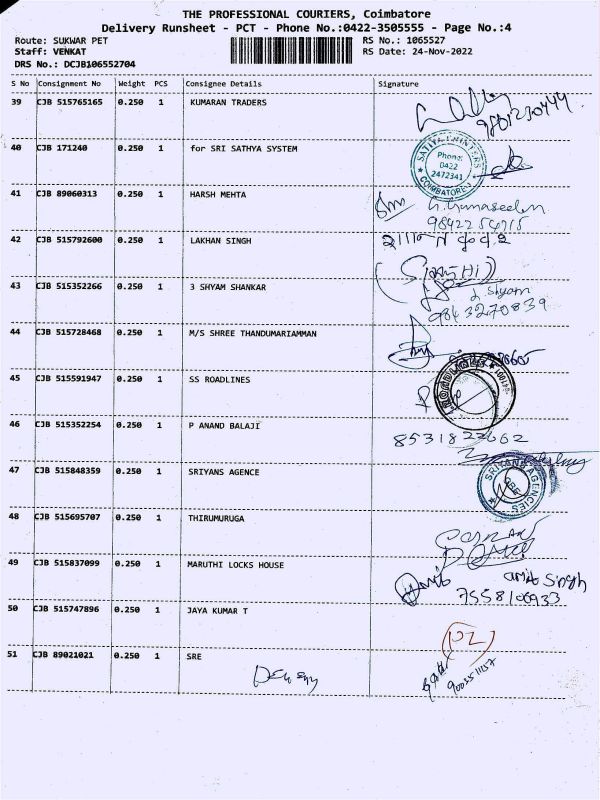 THE PROFESSIONAL COURIERS, Coimbatore
Delivery Runsheet - PCT - Phone No.:0422-3505555 - Page No.:4
Route: SUKWAR PET RS No.: 1065527
Staff: VENKAT RS Date: 24-Nov-2022
DRS No.: DCJB106552704
S No Consignment No Weight PCS Consignee Details Signature
39 CJB 515765165 0.250 1 KUMARAN TRADERS
40 CJB 171240 0.250 1 for SRI SATHYA SYSTEM
SATHYA PRINTERS
Phone:
0422
2472341
COIMBATORE
41 CJB 89060313 0.250 1 HARSH MEHTA
9842254715
42 CJB 515792600 0.250 1 LAKHAN SINGH
43 CJB 515352266 0.250 1 3 SHYAM SHANKAR
Shyam
9843270839
44 CJB 515728468 0.250 1 M/S SHREE THANDUMARIAMMAN
45 CJB 515591947 0.250 1 SS ROADLINES
46 CJB 515352254 0.250 1 P ANAND BALAJI
47 CJB 515848359 0.250 1 SRIYANS AGENCE
SRIYANS AGENCIES
CBE
48 CJB 515695707 0.250 1 THIRUMURUGA
49 CJB 515837099 0.250 1 MARUTHI LOCKS HOUSE
Amit Singh
7558106933
50 CJB 515747896 0.250 1 JAYA KUMAR T
51 CJB 89021021 0.250 1 SRE